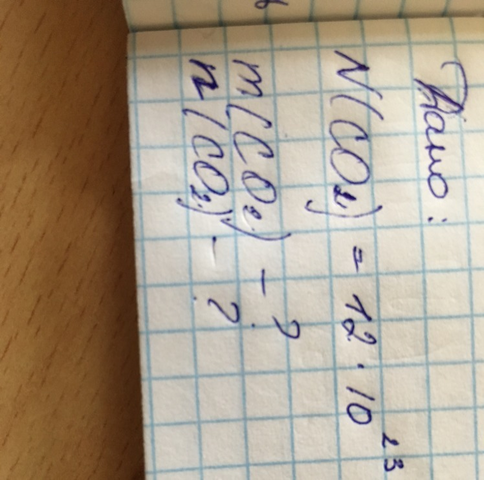 Дано:
N(CO₂) = 12 · 10²³
m(CO₂) - ?
n(CO₂) - ?